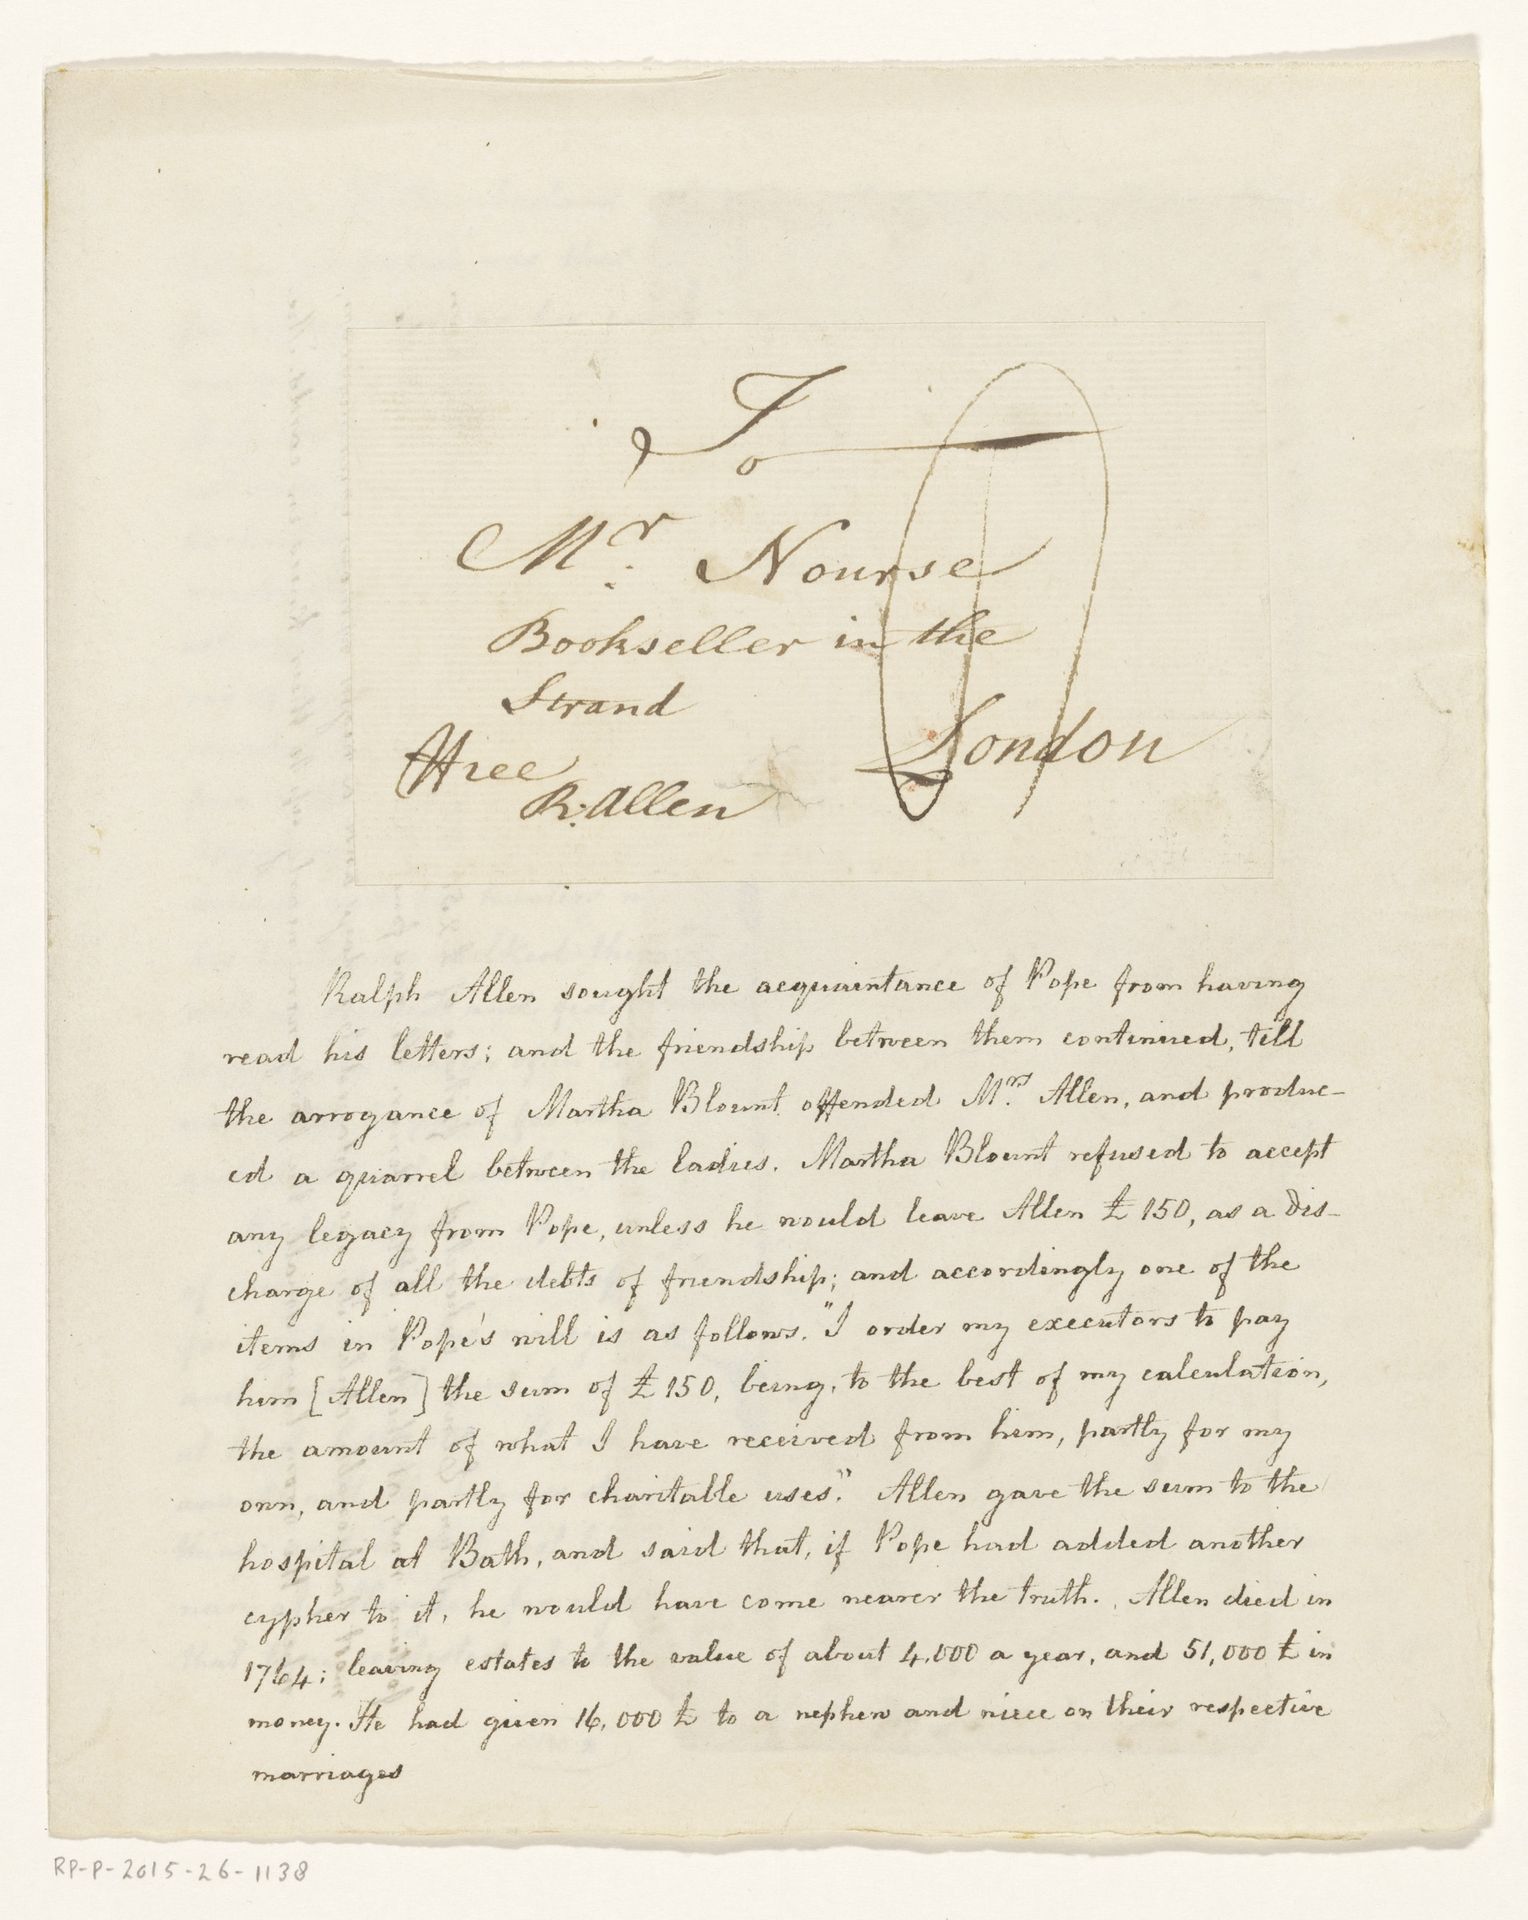 To
Mr. Nourse
Bookseller in the
Strand
London
ffree
R. Allen
Ralph Allen sought the acquaintance of Pope from having
read his letters; and the friendship between them continued, till
the arrogance of Martha Blount offended Mrs. Allen, and produc-
ed a quarrel between the ladies. Martha Blount refused to accept
any legacy from Pope, unless he would leave Allen £150, as a dis-
charge of all the debts of friendship; and accordingly one of the
items in Pope's will is as follows. "I order my executors to pay
him [Allen] the sum of £150, being, to the best of my calculation,
the amount of what I have received from him, partly for my
own, and partly for charitable uses." Allen gave the sum to the
hospital at Bath, and said that, if Pope had added another
cypher to it, he would have come nearer the truth. Allen died in
1764; leaving estates to the value of about 4,000 a year, and 51,000 £ in
money. He had given 16,000 £ to a nephew and niece on their respective
marriages
RP-P-2015-26-1138